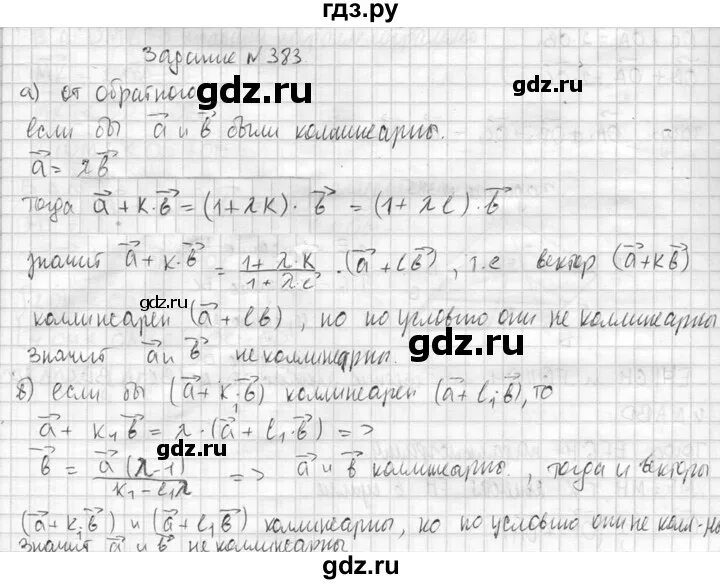 гдз.ру
Задание №383
а) от обратного
gdz.ru gdz.ru
если бы a⃗ и b⃗ были коллинеарны.
a⃗ = λb⃗
тогда a⃗ + k·b⃗ = (1+λk)·b⃗ = (1+λl)·b⃗
значит a⃗ + k·b⃗ = (1+λ·k)/(1+λ·l)·(a⃗+lb⃗), т.е вектор (a⃗+kb⃗)
gdz.ru gdz.ru
коллинеарен (a⃗ + lb), но по условию они не коллинеарны
значит a⃗ и b⃗ не коллинеарны.
gdz.ru
б) если бы (a⃗ + k₁b⃗) коллинеарен (a⃗ + l₁b⃗), то
a⃗ + k₁b⃗ = λ·(a⃗ + l₁·b⃗) =>
b⃗ = a⃗(λ-1)/(k₁-l₁λ) => a⃗ и b⃗ коллинеарны, тогда и векторы
gdz.ru gdz.ru
(a⃗+k₁b⃗) и (a⃗+l₁b⃗) коллинеарны, но по условию они не колл-ны
значит a⃗ и b⃗ не коллинеарны
gdz.ru